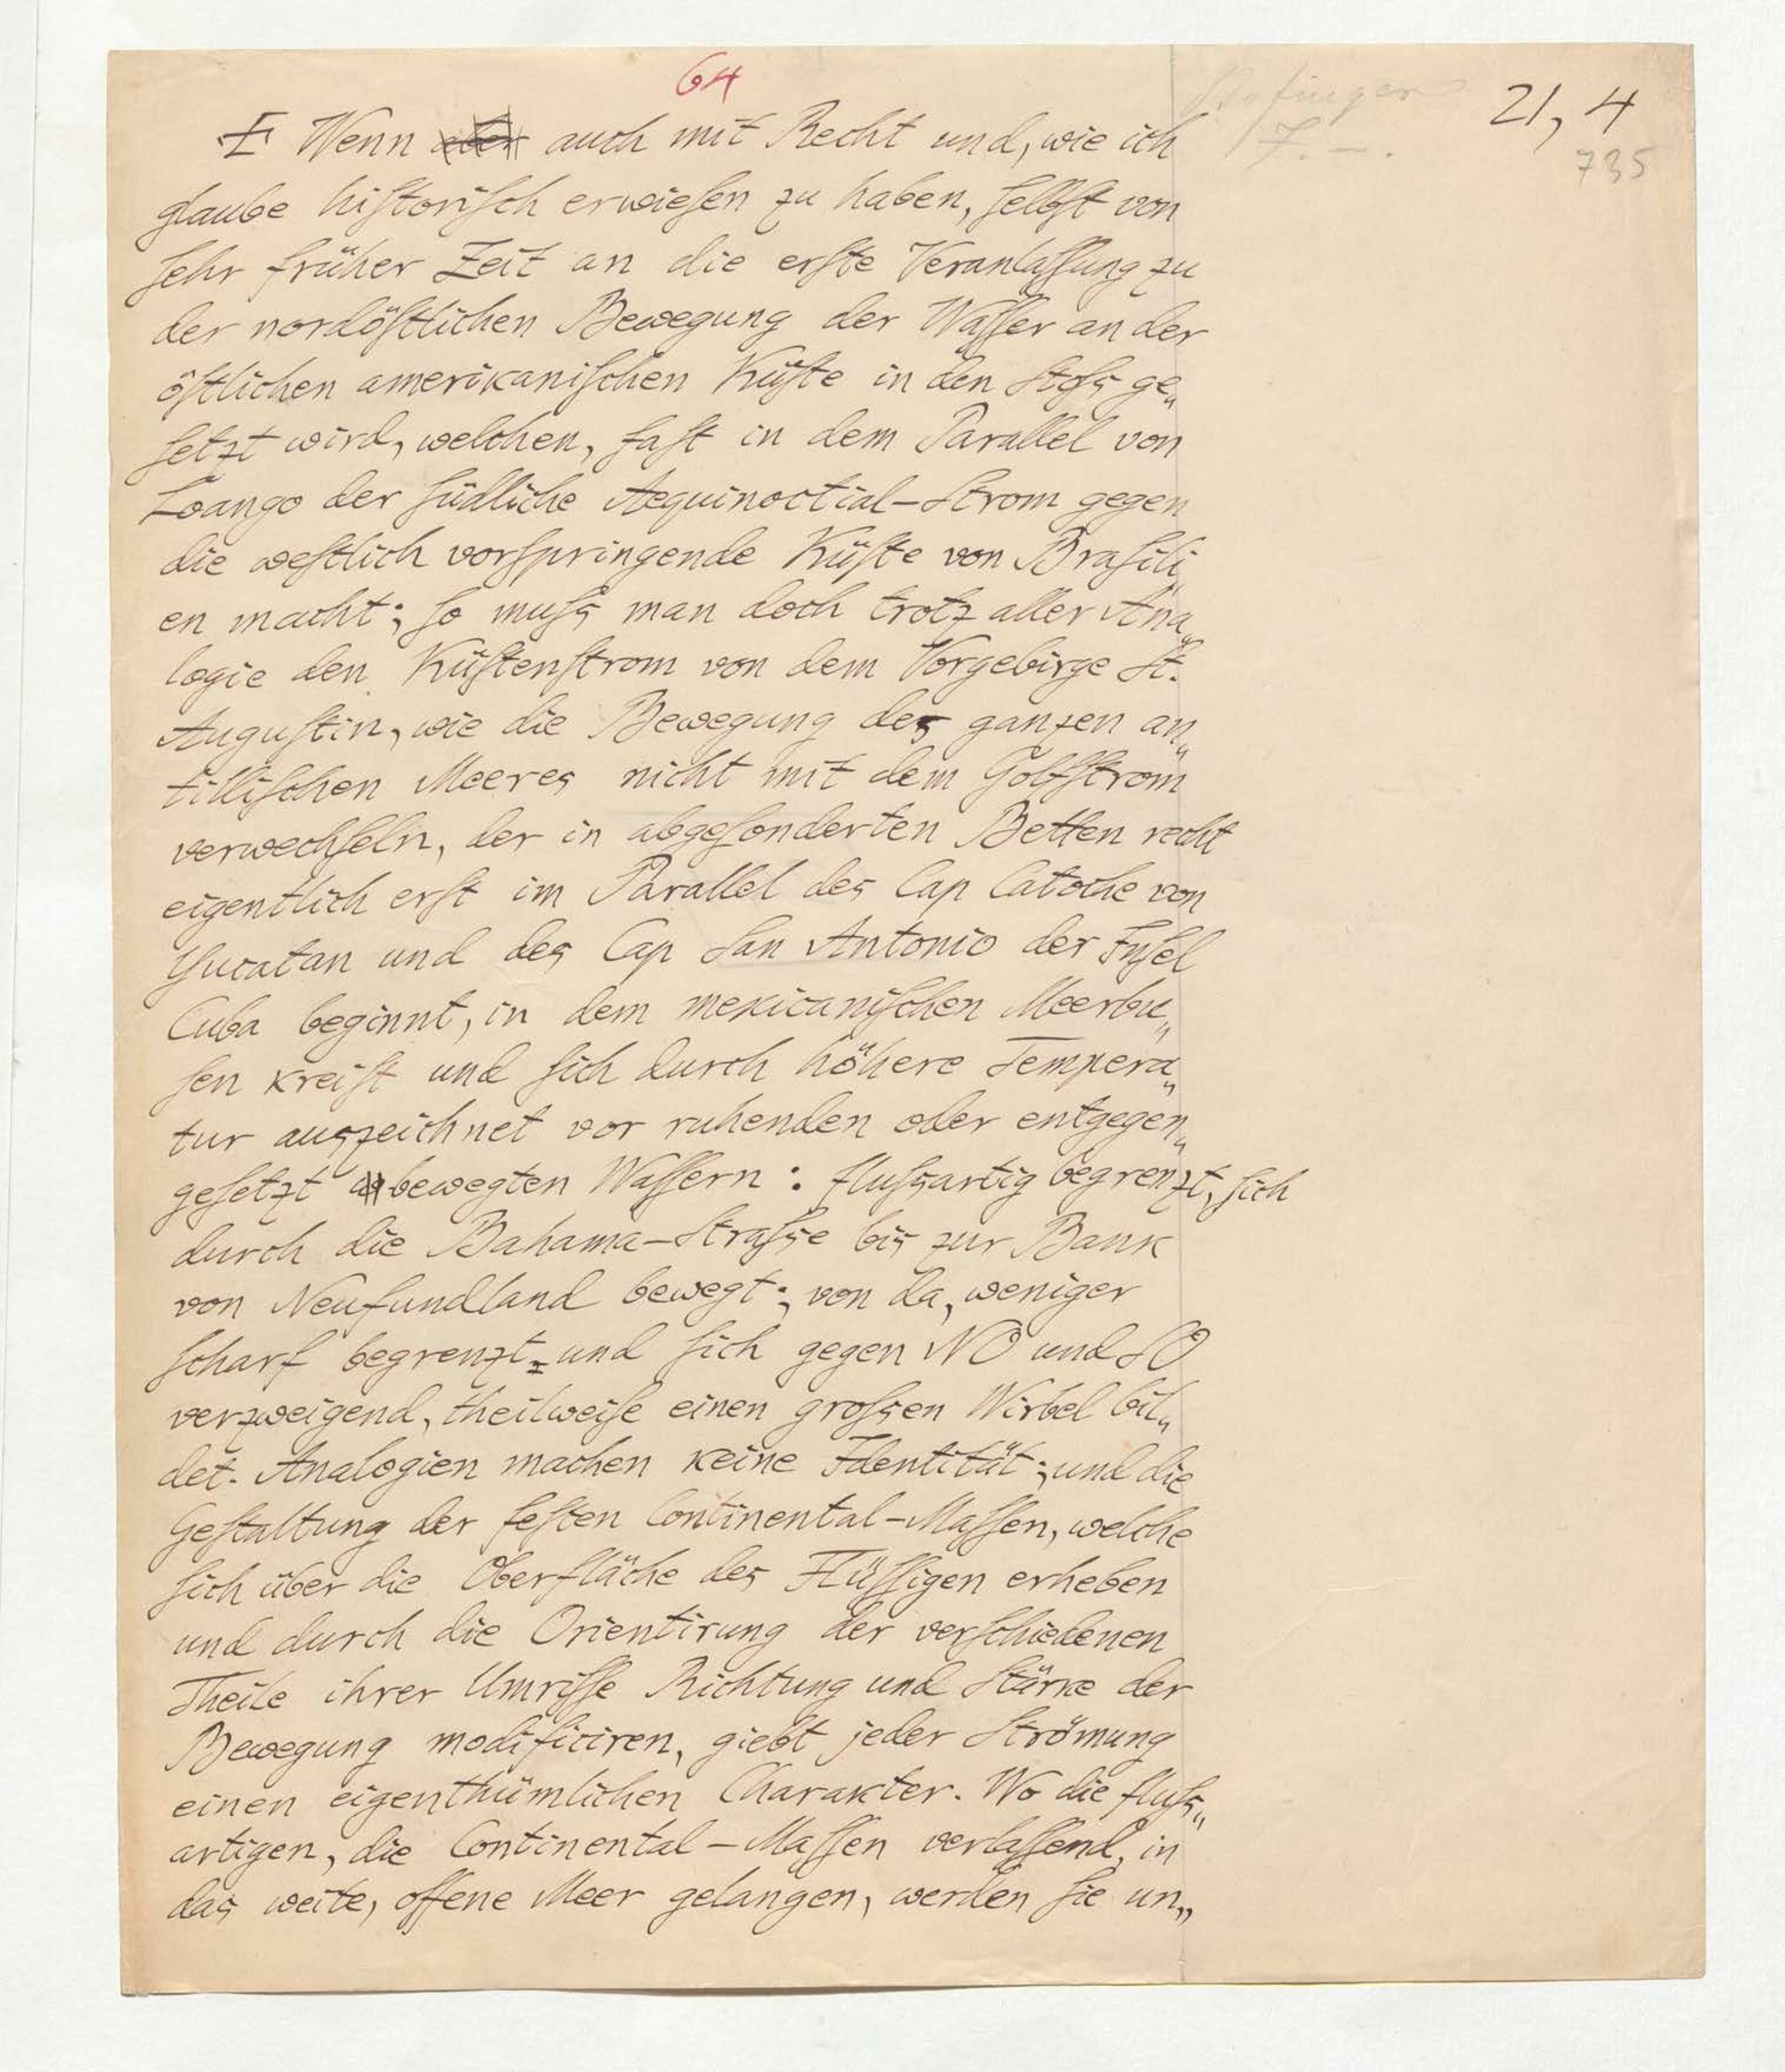 64
21, 4
735
Wenn aber auch mit Recht und, wie ich
glaube hiſtoriſch erwieſen zu haben, ſelbſt von
ſehr früher Zeit an die erſte Veranlaſſung zu
der nordöſtlichen Bewegung der Waſſer an der
öſtlichen amerikaniſchen Küſte in den Stoſs ge„
ſetzt wird, welchen, faſt in dem Parallel von
Loango der ſüdliche Aequinoctial-Strom gegen
die weſtlich vorſpringende Küſte von Braſili„
en macht; ſo muſs man doch trotz aller Ana„
logie den Küſtenſtrom von dem Vorgebirge St.
Auguſtin, wie die Bewegung des ganzen an„
tilliſchen Meeres nicht mit dem Golfſtrom
verwechſeln, der in abgeſonderten Betten recht
eigentlich erſt im Parallel des Cap Catoche von
Yucatan und des Cap San Antonio der Inſel
Cuba beginnt, in dem mexicaniſchen Meerbu„
ſen kreiſt und ſich durch höhere Tempera„
tur auszeichnet vor ruhenden oder entgegen„
geſetzt bewegten Waſſern: fluſsartig begrenzt, ſich
durch die Bahama-Straſse bis zur Bank
von Neufundland bewegt; von da, weniger
ſcharf begrenzt und ſich gegen NO und SO
verzweigend, theilweiſe einen groſsen Wirbel bil„
det. Analogien machen keine Identität; und die
Geſtaltung der feſten Continental-Maſſen, welche
ſich über die Oberfläche des Flüſſigen erheben
und durch die Orientirung der verſchiedenen
Theile ihrer Umriſſe Richtung und Stärke der
Bewegung modificiren, giebt jeder Strömung
einen eigenthümlichen Charakter. Wo die fluſs„
artigen, die Continental-Maſſen verlaſſend, in
das weite, offene Meer gelangen, werden ſie un„